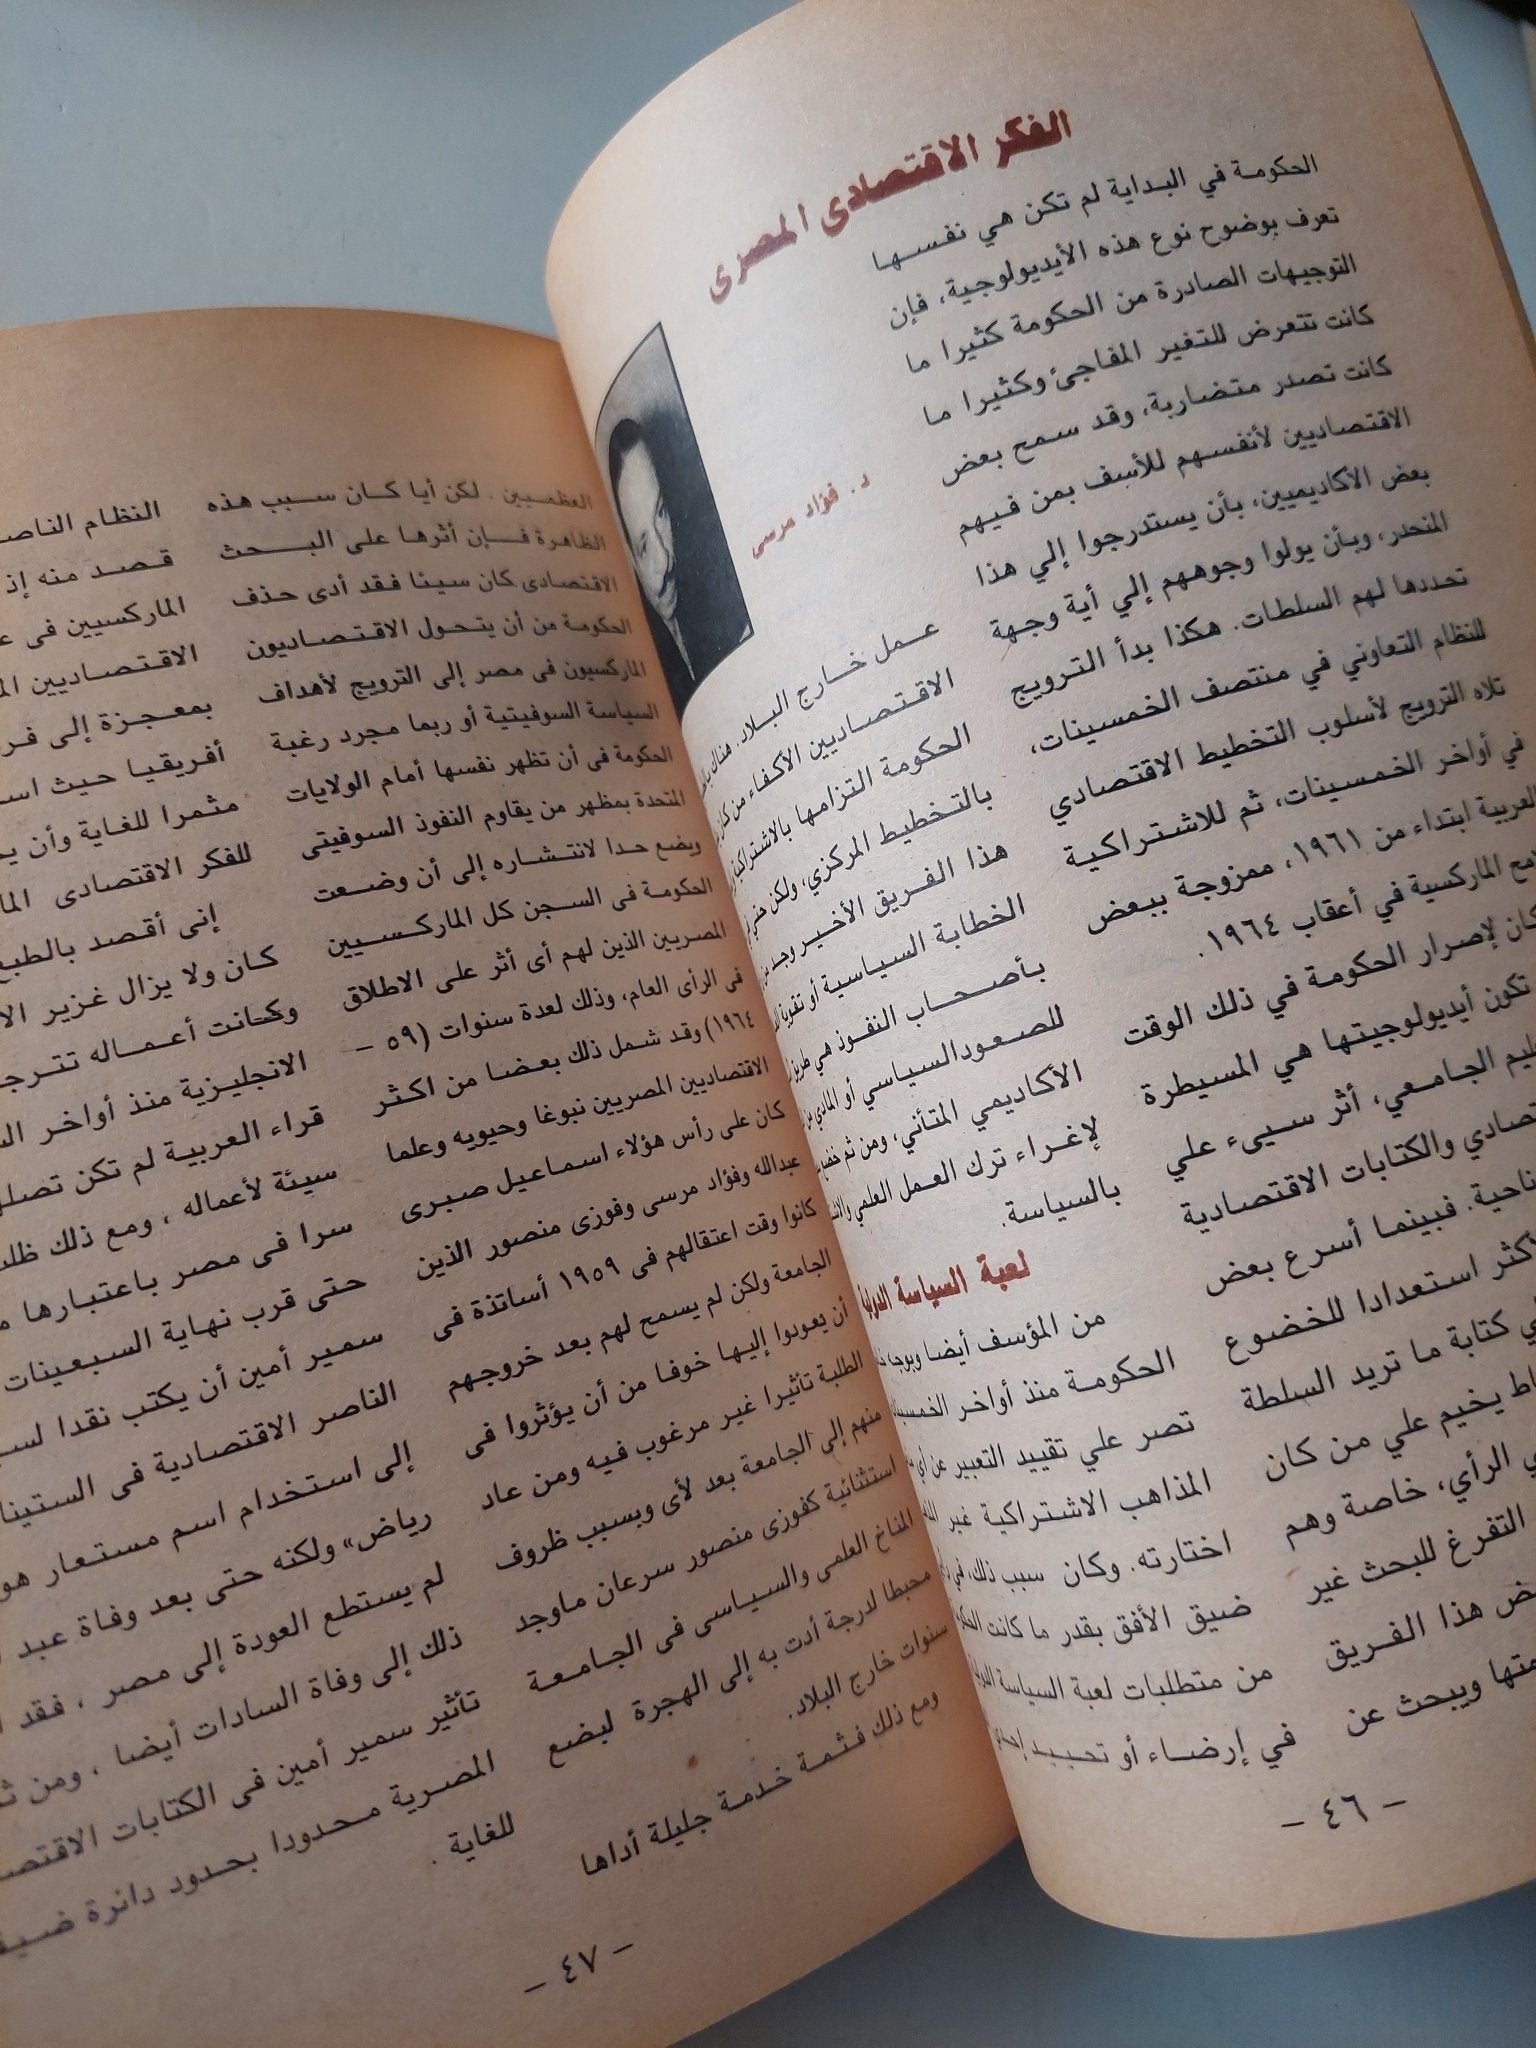 الفكر الاقتصادى المصرى
الحكومة في البداية لم تكن هي نفسها
تعرف بوضوح نوع هذه الأيديولوجية، فإن
التوجيهات الصادرة من الحكومة كثيرا ما
كانت تتعرض للتغير المفاجئ وكثيرا ما
كانت تصدر متضاربة، وقد سمح بعض
الاقتصاديين لأنفسهم للأسف بمن فيهم
بعض الأكاديميين، بأن يستدرجوا إلي هذا
المنحدر، وبأن يولوا وجوههم إلي أية وجهة
تحددها لهم السلطات. هكذا بدأ الترويج
للنظام التعاوني في منتصف الخمسينات،
تلاه الترويج لأسلوب التخطيط الاقتصادي
في أواخر الخمسينات، ثم للاشتراكية
العربية ابتداء من ١٩٦١، ممزوجة ببعض
الماركسية في أعقاب ١٩٦٤.
كان لإصرار الحكومة في ذلك الوقت
تكون أيديولوجيتها هي المسيطرة
الجامعي، أثر سييء علي
والكتابات الاقتصادية
ناحية. فبينما أسرع بعض
استعدادا للخضوع
كتابة ما تريد السلطة
يخيم علي من كان
الرأي، خاصة وهم
التفرغ للبحث غير
هذا الفريق
ويبحث عن
د. فؤاد مرسى
عمل خارج البلاد.
الاقتصاديين الأكفاء من
الحكومة التزامها بالاشتراكية
بالتخطيط المركزي، ولكن
هذا الفريق الأخير وجد
الخطابة السياسية أو تقوية
بأصحاب النفوذ هي طريق
للصعود السياسي أو المادي
الأكاديمي المتأني، ومن ثم
لإغراء ترك العمل العلمي
بالسياسة.
لعبة السياسة الدولية
من المؤسف أيضا
الحكومة منذ أواخر
تصر علي تقييد التعبير عن أي
المذاهب الاشتراكية غير
اختارته. وكان سبب ذلك، في
ضيق الأفق بقدر ما كانت
من متطلبات لعبة السياسة
في إرضاء أو تحييد
- ٤٦ -
العظميين . لكن أيا كان سبب هذه
الظاهرة فإن أثرها على البحث
الاقتصادى كان سيئا فقد أدى حذف
الحكومة من أن يتحول الاقتصاديون
الماركسيون فى مصر إلى الترويج لأهداف
السياسة السوفيتية أو ربما مجرد رغبة
الحكومة فى أن تظهر نفسها أمام الولايات
المتحدة بمظهر من يقاوم النفوذ السوفيتى
ويضع حدا لانتشاره إلى أن وضعت
الحكومة فى السجن كل الماركسيين
المصريين الذين لهم أى أثر على الاطلاق
فى الرأى العام، وذلك لعدة سنوات (٥٩ -
١٩٦٤) وقد شمل ذلك بعضا من اكثر
الاقتصاديين المصريين نبوغا وحيويه وعلما
كان على رأس هؤلاء اسماعيل صبرى
عبدالله وفؤاد مرسى وفوزى منصور الذين
كانوا وقت اعتقالهم فى ١٩٥٩ أساتذة فى
الجامعة ولكن لم يسمح لهم بعد خروجهم
أن يعودوا إليها خوفا من أن يؤثروا فى
الطلبة تأثيرا غير مرغوب فيه ومن عاد
منهم إلى الجامعة بعد لأى وبسبب ظروف
استثنائية كفوزى منصور سرعان ماوجد
المناخ العلمى والسياسى فى الجامعة
محبطا لدرجة أدت به إلى الهجرة لبضع
سنوات خارج البلاد.
ومع ذلك فثمة خدمة جليلة أداها
النظام
قصد منه إذ
الماركسيين فى
الاقتصاديين
بمعجزة إلى
أفريقيا حيث
مثمرا للغاية وأن
للفكر الاقتصادى
إنى أقصد
كان ولا يزال غزير
وكانت أعماله
الانجليزية منذ أواخر
قراء العربية لم تكن
سيئة لأعماله ، ومع ذلك
سرا فى مصر باعتبارها
حتى قرب نهاية السبعينات
سمير أمين أن يكتب نقدا
الناصر الاقتصادية فى
إلى استخدام اسم مستعار هو
رياض» ولكنه حتى بعد وفاة عبد
لم يستطع العودة إلى مصر ، فقد
ذلك إلى وفاة السادات أيضا ، ومن
تأثير سمير أمين فى الكتابات
المصرية محدودا بحدود دائرة
للغاية .
- ٤٧ -